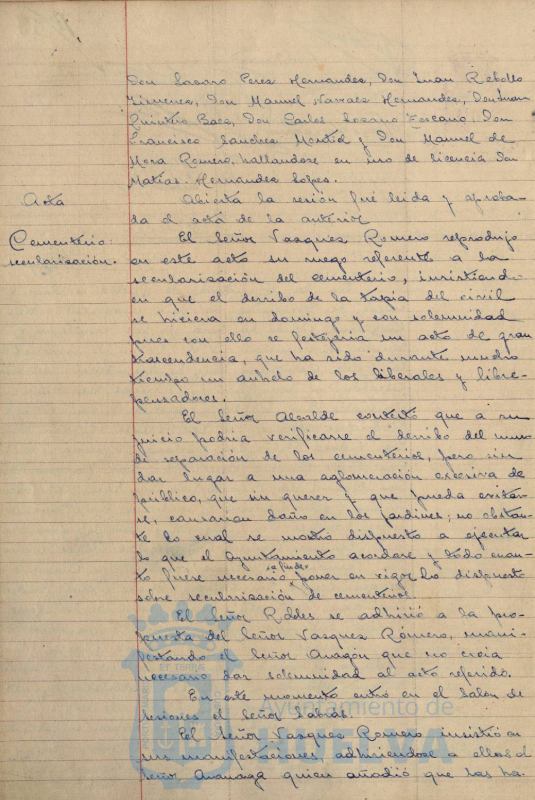 Don Lazaro Perez Hernandez, Don Juan Rebollo
Jimenez, Don Manuel Narvaez Hernandez, Don Juan
Quintero Baez, Don Carlos Lozano Toscano, Don
Francisco Sanchez Montiel y Don Manuel de
Mora Romero, hallandose en uso de licencia Don
Matias Hernandez Lopez.
Acta
Abierta la sesión fué leida y aproba-
da el acta de la anterior
Cementerio:
secularización.
El Señor Vazquez Romero reprodujo
en este acto su ruego referente a la
secularización del cementerio, insistiendo
en que el derribo de la tapia del civil
se hiciera en domingo y con solemnidad
pues con ello se festejaria un acto de gran
trascendencia, que ha sido durante mucho
tiempo un anhelo de los liberales y libre-
pensadores.
El Señor Alcalde contestó que a su
juicio podria verificarse el derribo del muro
de separación de los cementerios, pero sin
dar lugar a una aglomeración excesiva de
público, que sin querer y que pueda evitar-
se, causarian daño en los jardines; no obstan-
te lo cual se mostró dispuesto a ejecutar
lo que el Ayuntamiento acordare y todo cuan-
to fuere necesario a fin de poner en vigor lo dispuesto
sobre secularización de cementerios.
El Señor Robles se adhirió a la pro-
puesta del Señor Vazquez Romero, mani-
festando el Señor Aragón que no creia
necesario dar solemnidad al acto referido.
En este momento entró en el Salon de
sesiones el Señor Sabrás.
El Señor Vazquez Romero insistió en
sus manifestaciones, adhiriendose a ellas el
Señor quien añadió que las ha-
Ayuntamiento de
HUELVA